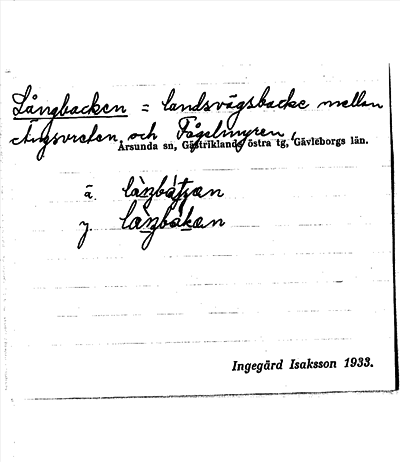 Långbacken = landsvägsbacke mellan
och Fågelmyren,
Årsunda sn, Gästriklands östra tg, Gävleborgs län.
ä.
y.
Ingegärd Isaksson 1933.